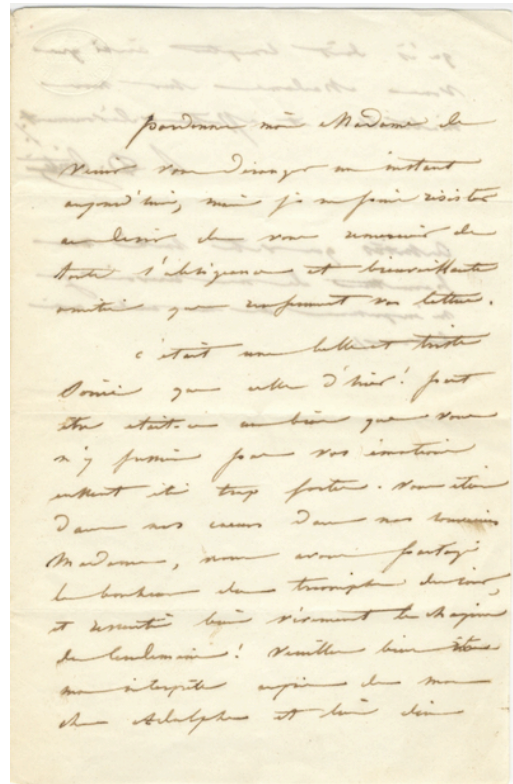 pardonnez moi Madame de
venir vous déranger un instant
aujourd'hui, mais je ne puis résister
au désir de vous remercier de
toute l'obligeance et bienveillante
amitié que renferment vos lettres.
c'était une belle et triste
soirée que celle d'hier! peut
être était-ce un bien que vous
n'y fussiez pas vos émotions
eussent été trop fortes. vous étiez
dans nos cœurs dans nos souvenirs
Madame, nous avons partagé
le bonheur du triomphe du soir,
et ressenti bien vivement le chagrin
du lendemain! veuillez bien être
mon interprète auprès de mon
cher Adolphe et lui dire